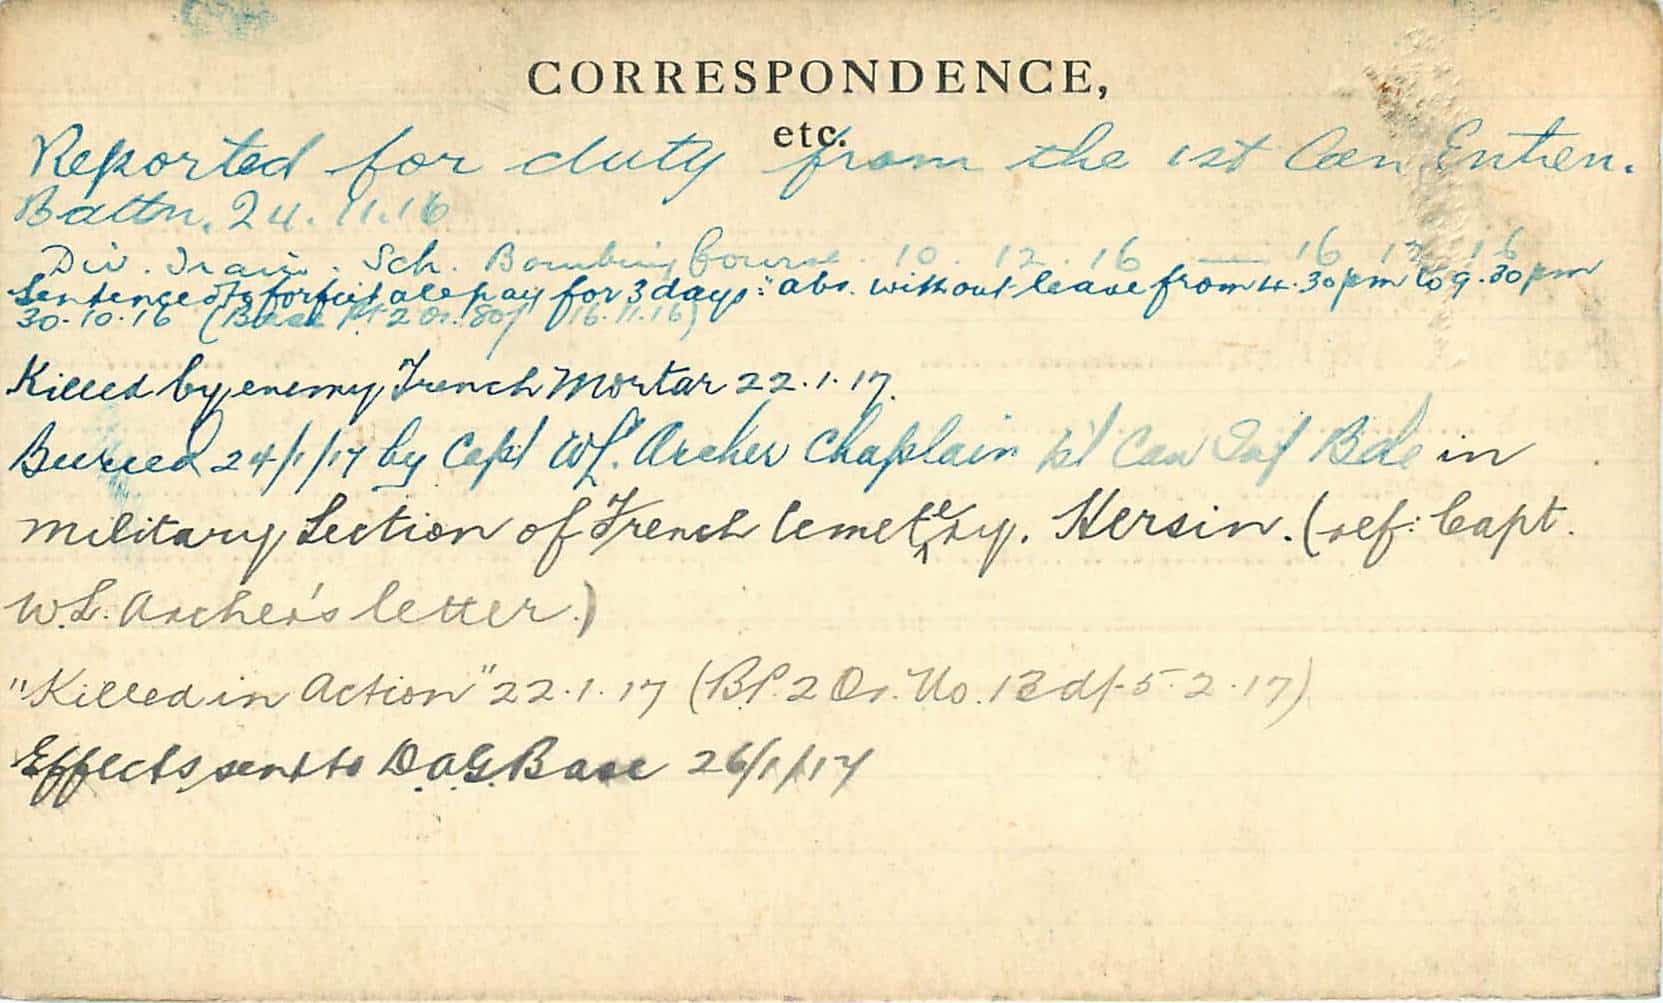 CORRESPONDENCE,
etc.
Reported for duty from the 1st Can Entren.
Battn. 24.11.16
Div. Train. Sch. Bombing Course. 10. 12. 16 — 16 12 16
Sentenced to forfeit all pay for 3 days: "abs. without leave from 4.30pm to 9.30pm
30.10.16 (Base Pt 2 Or. 80/ 16.11.16)
Killed by enemy Trench Mortar 22.1.17.
Buried 24/1/17 by Capt W.L. Archer Chaplain 1st Can Inf Bde in
military Section of French Cemetery. Hersin. (ref: Capt.
W.L. Archer's letter.)
"Killed in Action" 22.1.17 (B.P. 2 Or. No. 13 d/- 5.2.17)
Effects sent to D.A.G. Base 26/1/17